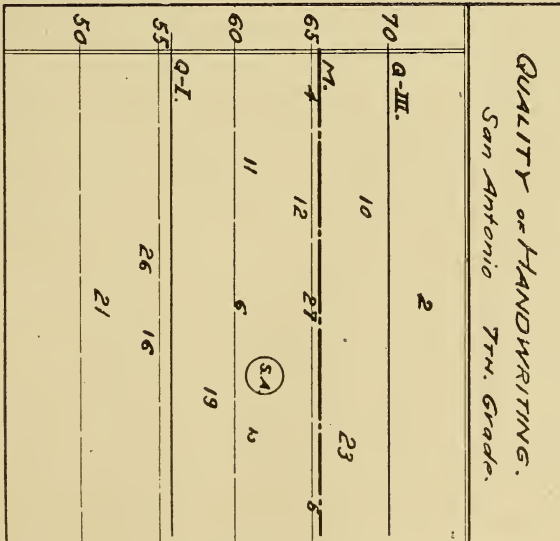 QUALITY OF HANDWRITING.
San Antonio 7TH. Grade.
70
Q-III.
65
M.
60
55
Q-I.
50
2
10
23
4
12
27
5
11
6
S.A
2
19
26
16
21